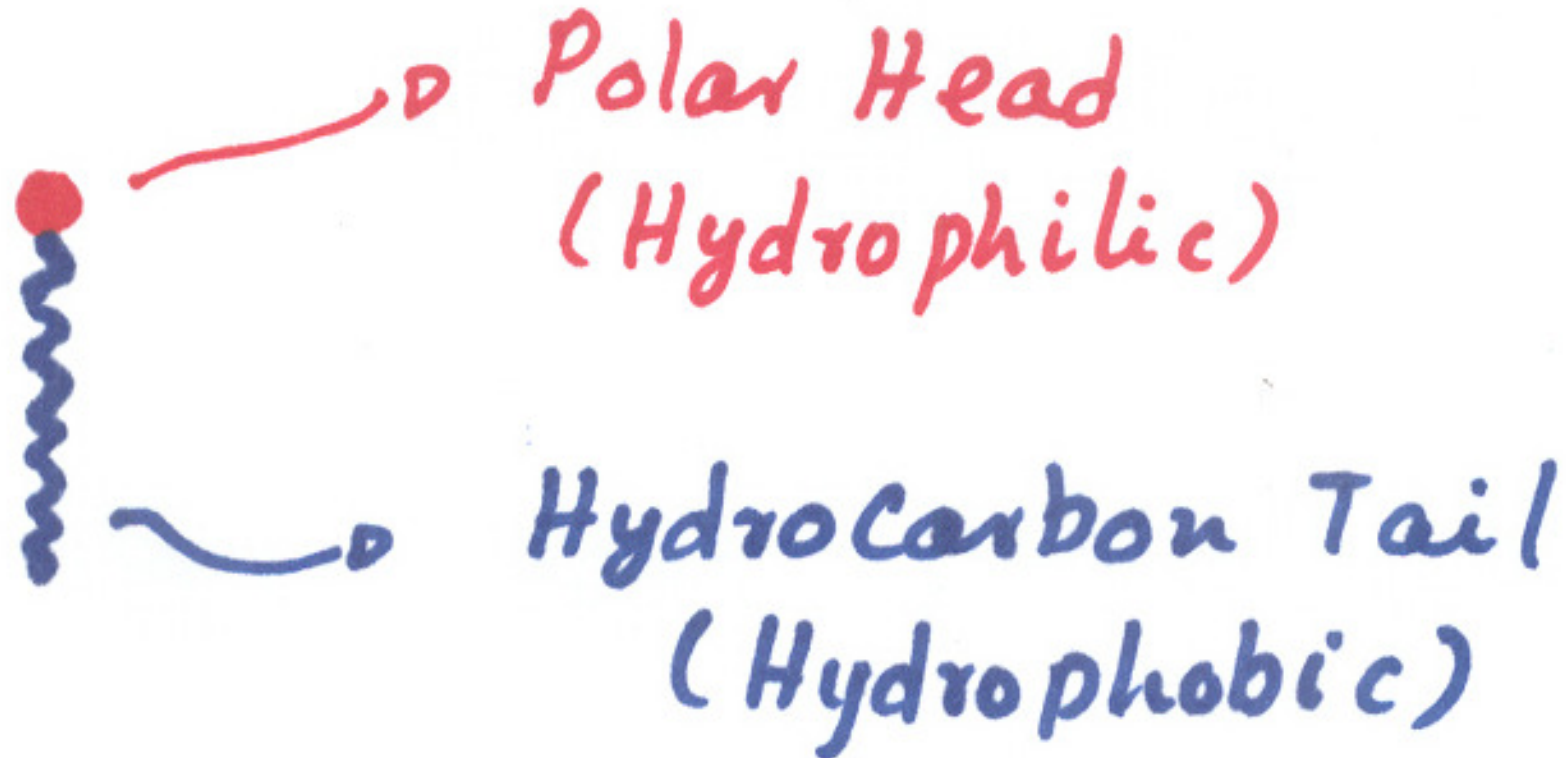 Polar Head
(Hydrophilic)
Hydrocarbon Tail
(Hydrophobic)